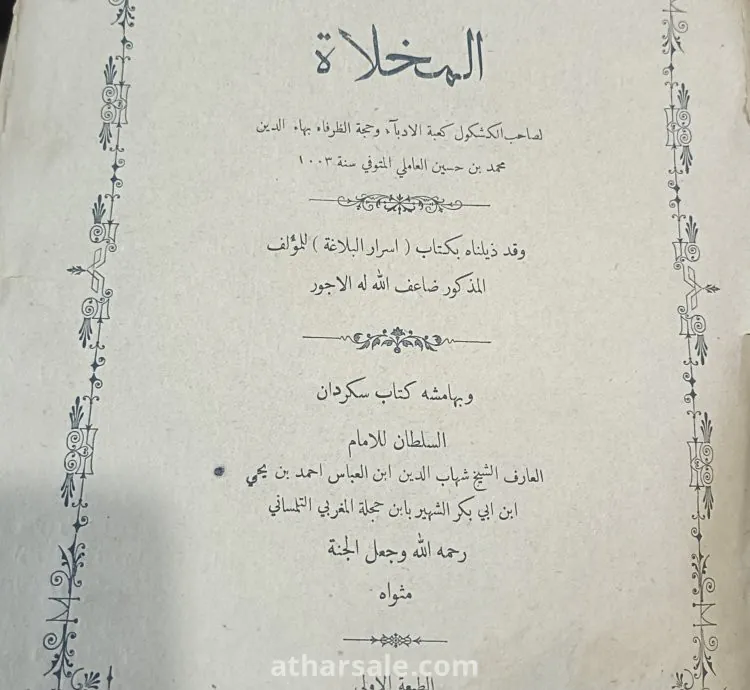 المخلاة
لصاحب الكشكول كعبة الادبآء وحجة الظرفاء بهاء الدين
محمد بن حسين العاملي المتوفي سنة ١٠٠٣
وقد ذيلناه بكتاب ( اسرار البلاغة ) للمؤلف
المذكور ضاعف الله له الاجور
وبهامشه كتاب سكردان
السلطان للامام
العارف الشيخ شهاب الدين ابن العباس احمد بن يحي
ابن ابي بكر الشهير بابن حجلة المغربي التلمساني
رحمه الله وجعل الجنة
مثواه
atharsale.com
الطبعة الاولى